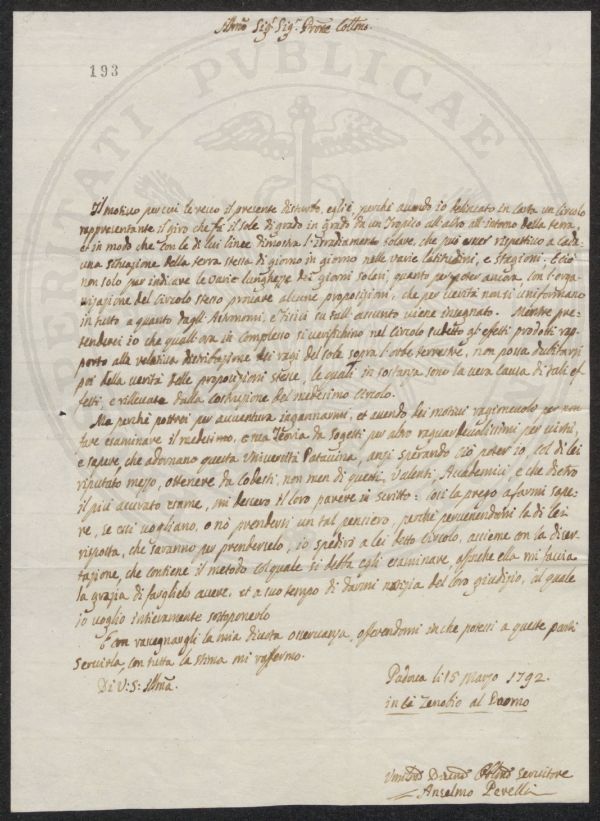 Illmo Sigr Sigr Prone Collmo.
193
Il motivo per cui le reco il presente disturbo, egli è, perchè avendo io delineato in Carta un Circolo
rappresentante il giro che fà il Sole di grado in grado da un Tropico all'altro all'intorno della terra,
et in modo che con le di lui linee dimostra l'Irradiamento solare, che può esser rispettivo a cada-
una situazione della terra stessa di giorno in giorno nelle varie latitudini, e Stagioni. E ciò
non solo per indicare le varie lunghezze dei giorni solari, quanto per poter ancora con l'orga-
nizazione del Circolo stesso provare alcune proposizioni, che per verità non si uniformano
in tutto a quanto dagli Astronomi, e Fisici su tall'assunto viene insegnato. Mentre pre-
tenderei io che quall'ora in Complesso si verifichino nel Circolo sudetto gl'effetti prodotti rap-
porto alla relativa distribuzione dei ragi del Sole sopra l'orbe terrestre, non possa dubitarsi
poi della verità delle proposizioni stesse, le quali in sostanza sono la vera causa di tali ef-
fetti, e rillevate dalla Costruzione del medesimo Circolo.
Ma perchè potrei per avventura ingannarmi, et avendo dei motivi ragionevoli per non
fare esaminare il medesimo, e sua Teoria da sogetti per altro raguardevolissimi per virtù,
e sapere, che adornano questa Università Patavina, anzi sperando ciò poter io col di lei
riputato mezzo, ottenere da Codesti, non men di questi, Valenti Academici, e che dietro
il più accurato esame, mi dassero il loro parere in scritto: Così la prego a farmi sape-
re, se essi vogliano, o nò prendersi un tal pensiero, perchè pervenendomi la di lei
risposta, che saranno per prenderselo, io spedirò a lei detto Circolo, assieme con la disser-
tazione, che contiene il metodo col quale si debba egli esaminare, affinchè ella mi faccia
la grazia di farghelo avere, et a suo tempo di darmi notizia del loro giudizio, al quale
io voglio intieramente sottoponerlo
E con rassegnargli la mia divota osservanza, offerendomi in che potessi a queste parti
servirla, con tutta la stima mi raffermo.
Di V: S: Illma.
Padova li 15 Marzo 1792.
in Cà Zenobio al Duomo
Servitore
Anselmo Perelli
PROSPERITATI PVBLICAE